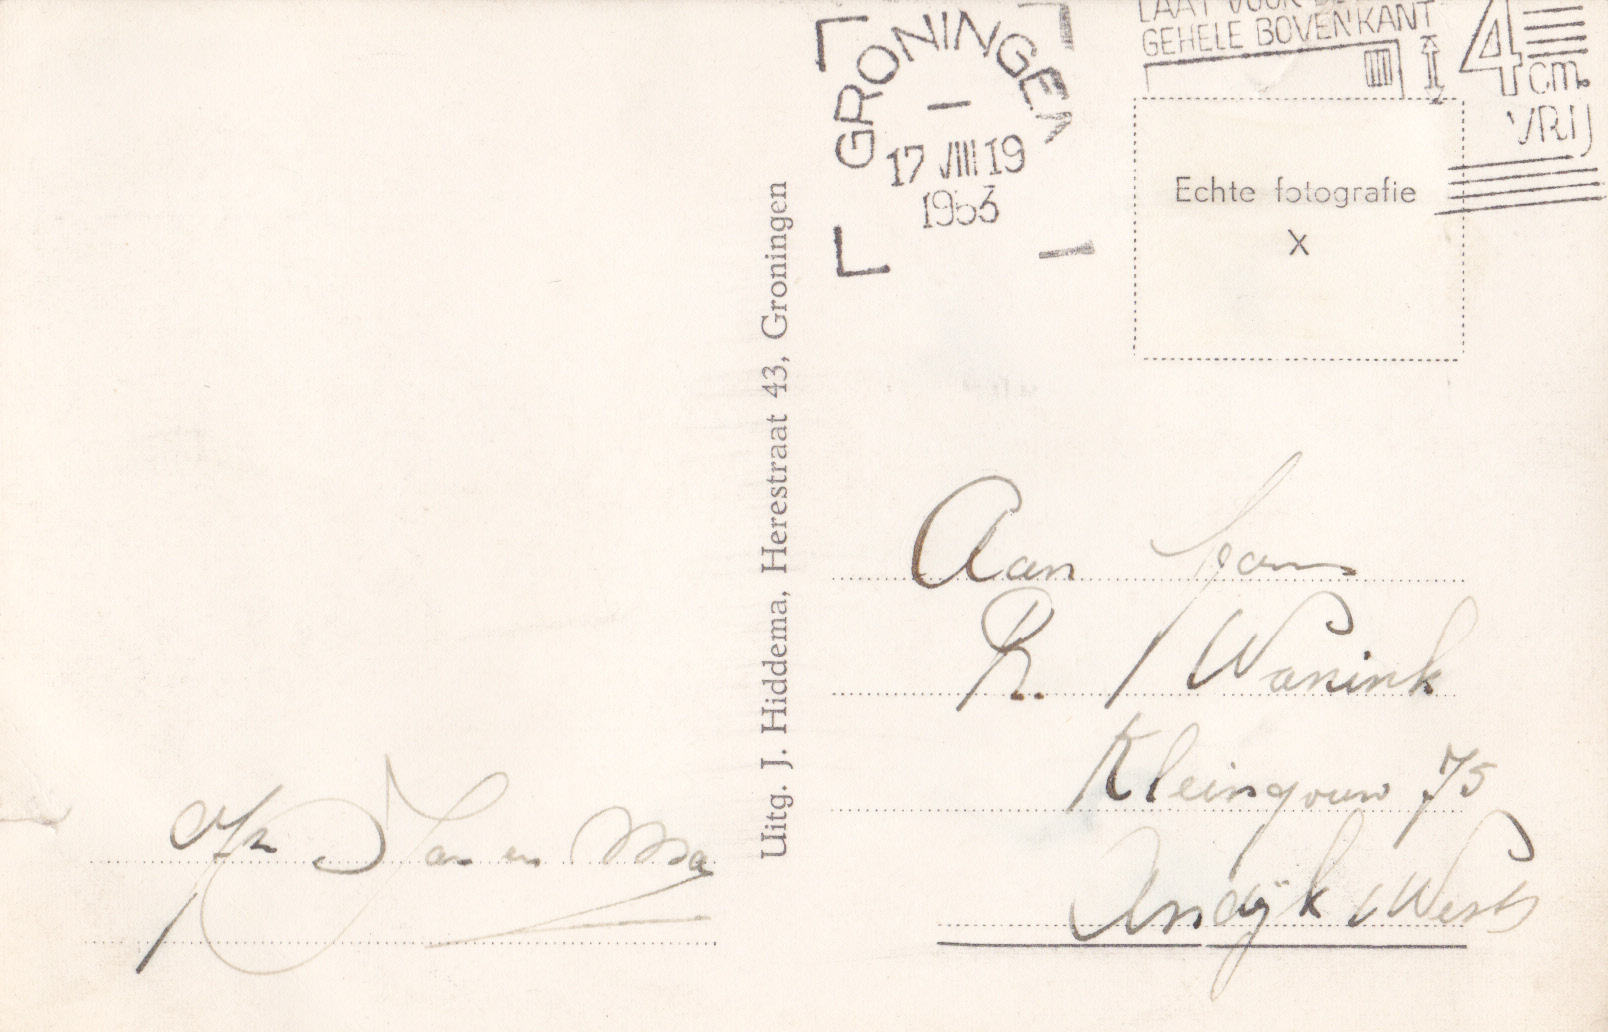 GRONINGEN
17 VIII 19
1953
LAAT VOOR
GEHELE BOVENKANT
4 cm.
VRIJ
Echte fotografie
X
Uitg. J. Hiddema, Herestraat 43, Groningen
Aan Fam
R. Wanink
Kleingouw 75
Andijk (West)
Afz Jan en Ma